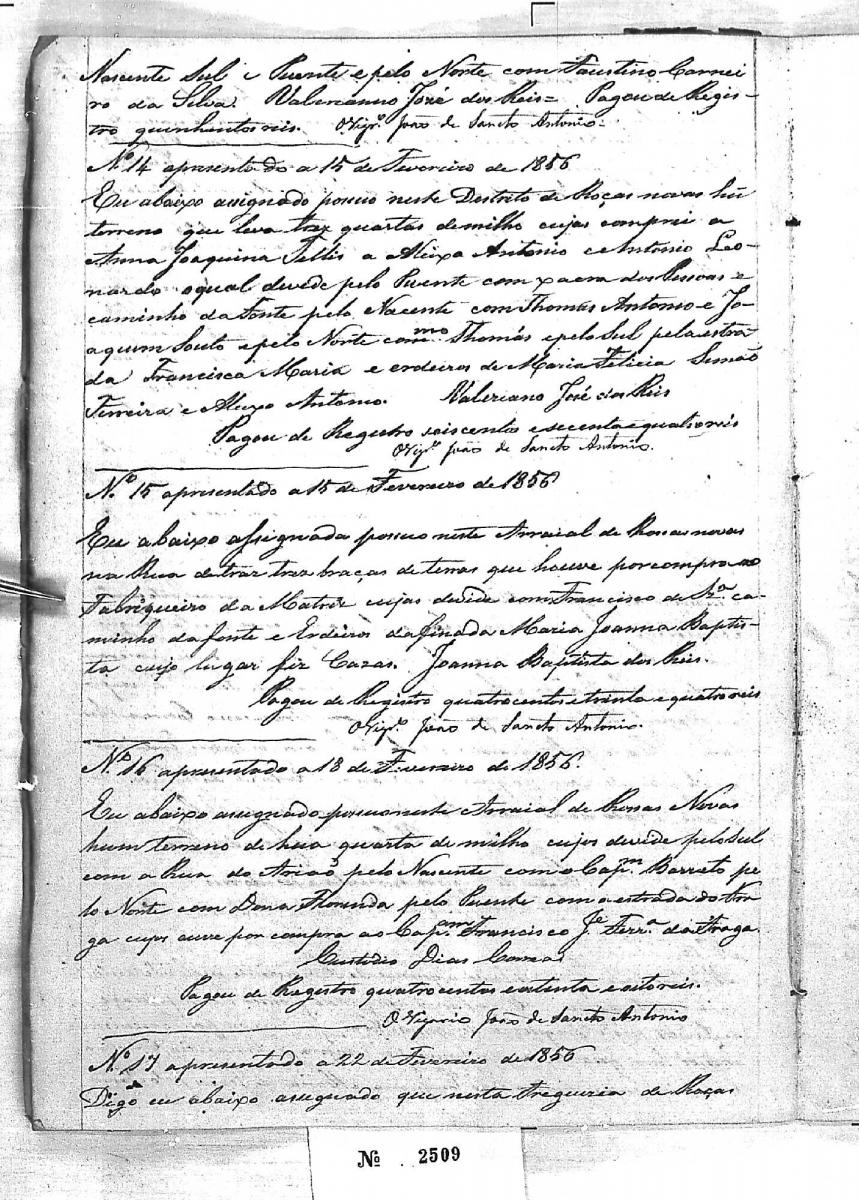 Nascente Sul e Puente e pelo Norte com Faustino Carnei
ro da Silva. Valerianno José dos Reis = Pagou de Regis-
tro quinhentos reis. O Vigrº João de Sancto Antonio.
Nº 14 apresentado a 15 de Fevereiro de 1856
Eu abaixo assignado possuo neste Destrito de Roças novas hũ
terreno que leva trez quartas de milho cujas comprei a
Anna Joaquina Telles a Aleixa Antonio e Antonio Leo-
nardo o qual devede pelo Puente com xacra dos Pessoas e
caminho da Fonte pelo Nacente com Thomás Antonio e Jo-
aquim Souto e pelo Norte com mmo Thomás e pelo Sul pela estra
da Francisca Maria e erdeiros de Maria Felicia Simão
Ferreira e Aleixo Antonio. Valeriano José dos Reis
Pagou de Registro seiscento e secenta e quatro reis
O Vigrº João de Sancto Antonio.
Nº 15 apresentado a 15 de Fevereiro de 1856
Eu abaixo assignada possuo neste Arraial de Rossas novas
na Rua de traz trez braças de terras que houve por compra ao
Fabriqueiro da Matriz cujas devide com Francisco de Szª ca-
minho da fonte e Erdeiros da finada Maria Joanna Baptis-
ta cujo lugar fiz Cazas. Joanna Baptista dos Reis.
Pagou de Registro quatrocentos e trinta e quatro reis
O Vigrº João de Sancto Antonio.
Nº 16 apresentado a 18 de Fevereiro de 1856.
Eu abaixo assignado possuo neste Arraial de Rossas Novas
hum terreno de hua quarta de milho cujos devide pelo Sul
com a Rua do pelo Nascente com o Capm Barreto pe
lo Norte com Dona Florinda pelo Puente com a estrada do Fra
ga cujos ouve por compra ao Capam Francisco Je Ferrª da Fraga.
Custodio Dias Correa
Pagou de Registro quatrocentos e oitenta e oito reis.
O Vigario João de Sancto Antonio
Nº 17 apresentado a 22 de Fevereiro de 1856
Digo eu abaixo assignado que nesta Freguezia de Roças
Nº 2509